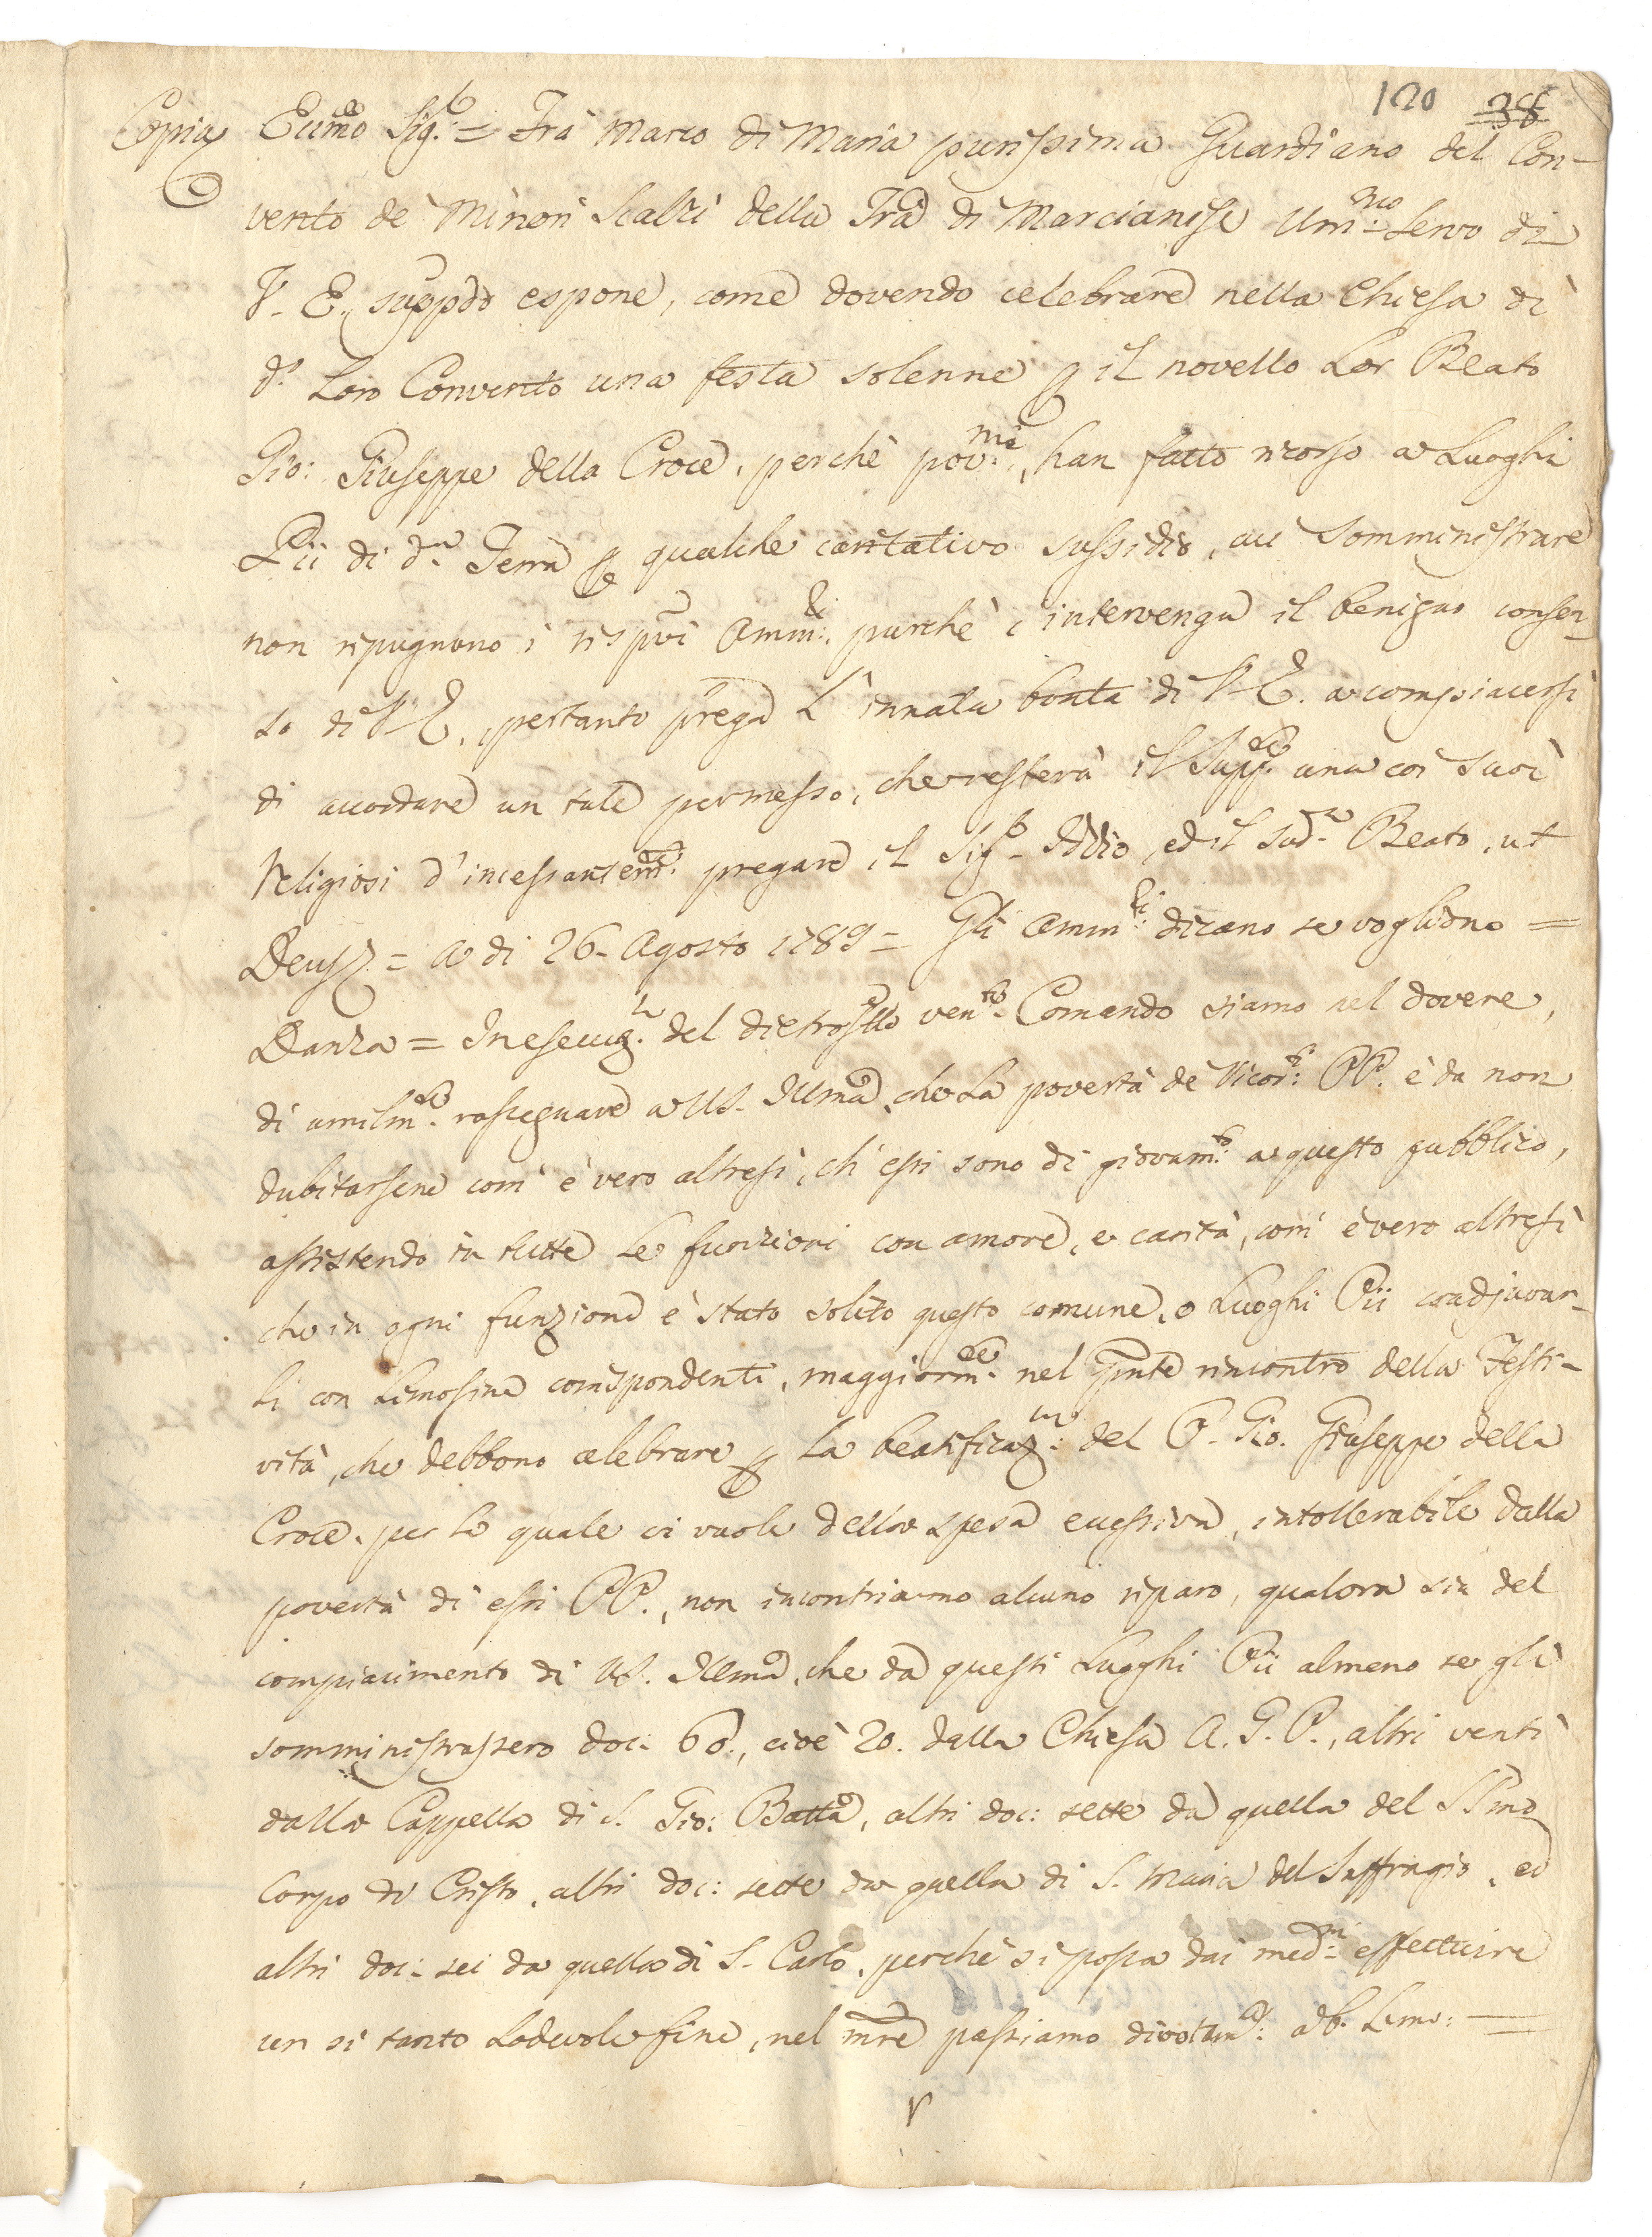 120 38
Copia Eccmo Sig.re = Frà Marco di Maria purissima Guardiano del Con-
vento de' Minori Scalzi della Trà di Marcianise Um:mo Servo di
V. E. suppdo espone, come dovendo celebrare nella Chiesa di
d.o Loro Convento una festa solenne p il novello Lor Beato
Gio: Giuseppe della Croce, perchè pov:mi, han fatto ricorso a Luoghi
Pii di d.a Terra p qualche caritativo sussidio, cui somministrare
non ripugnano i rispvi Amm:ri purchè c'intervenga il benigno consen-
so di V. E., pertanto prega l'innata bontà di V. E. a compiacersi
di accordare un tale permesso, che resterà il Supp.te una coi Suoi
Religiosi d'incessantem:te pregare il Sig.re Iddio, ed il Sud.o Beato, ut
Deus = A di 26. Agosto 1789 = Gli Amm:ri dicano se vogliono =
Danza = In esecuz.ne del dietroscto ven.to Comando siamo nel dovere,
di umilm.te rassegnare a VS. Illma, che la povertà de' Ricor:ti PP. è da non
dubitarsene com' è vero altresì, ch'essi sono di giovam:to a questo pubblico,
assistendo in tutte le funzioni con amore, e carità, com' è vero altresì
che in ogni funzione è stato solito questo comune, e Luoghi Pii coadjuvar-
li con limosine corrispondenti, maggiorm.te nel pnte rincontro della Festi-
vità, che debbono celebrare p la beatificaz:ne del P. Gio. Giuseppe della
Croce, per lo quale ci vuole della spesa eccessiva, intollerabile dalla
povertà di essi PP., non incontriamo alcuno riparo, qualora sia del
compiacimento di VS. Illma, che da questi Luoghi Pii almeno se gli
somministrassero doc: 60:, cioè 20. dalla Chiesa A. G. P., altri venti
dalla Cappella di S. Gio: Batta, altri doc: sette da quella del SSmo
Corpo di Cristo, altri doc: sette da quella di S. Maria del Suffragio, ed
altri doc: sei da quella di S. Carlo, perchè si possa dai med:mi effettuire
un si tanto lodevole fine, nel mre passiamo divotam:te a b. le m:=